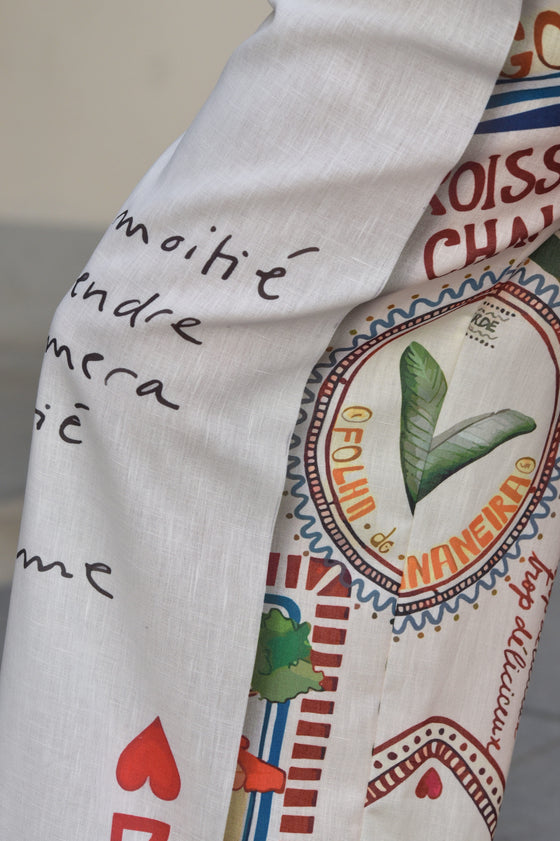 moitié
endre
mera
ié
me
GO
OISS
CHAU
RDE
FOLHA de
NANEIRA
trop délicieux